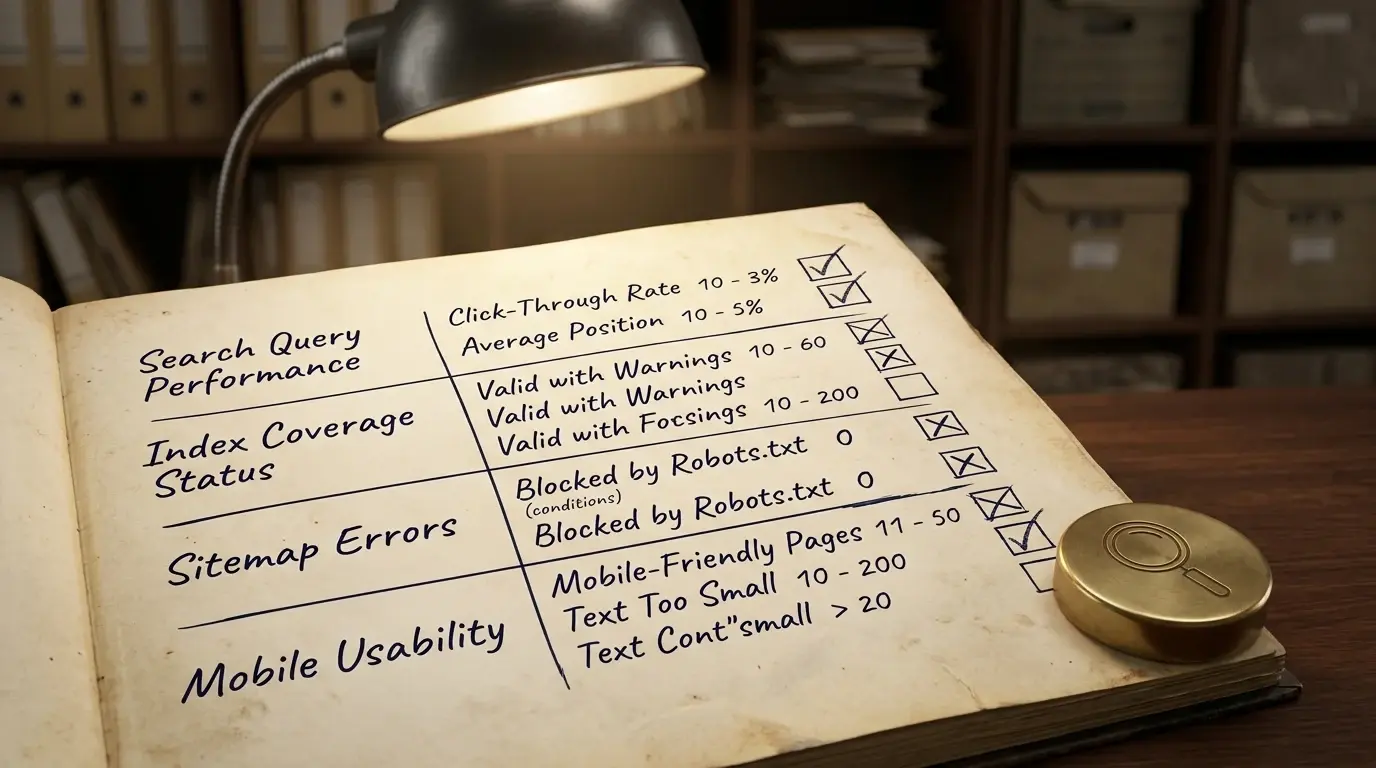 Search Query
Performance
Click-Through Rate 10 - 3%
Average Position 10 - 5%
Index Coverage
Status
Valid with Warnings 10 - 60
Valid with Warnings
Valid with Focsings 10 - 200
Sitemap Errors
Blocked by Robots.txt 0
(conditions)
Blocked by Robots.txt 0
Mobile Usability
Mobile-Friendly Pages 11 - 50
Text Too Small 10 - 200
Text Cont"small > 20